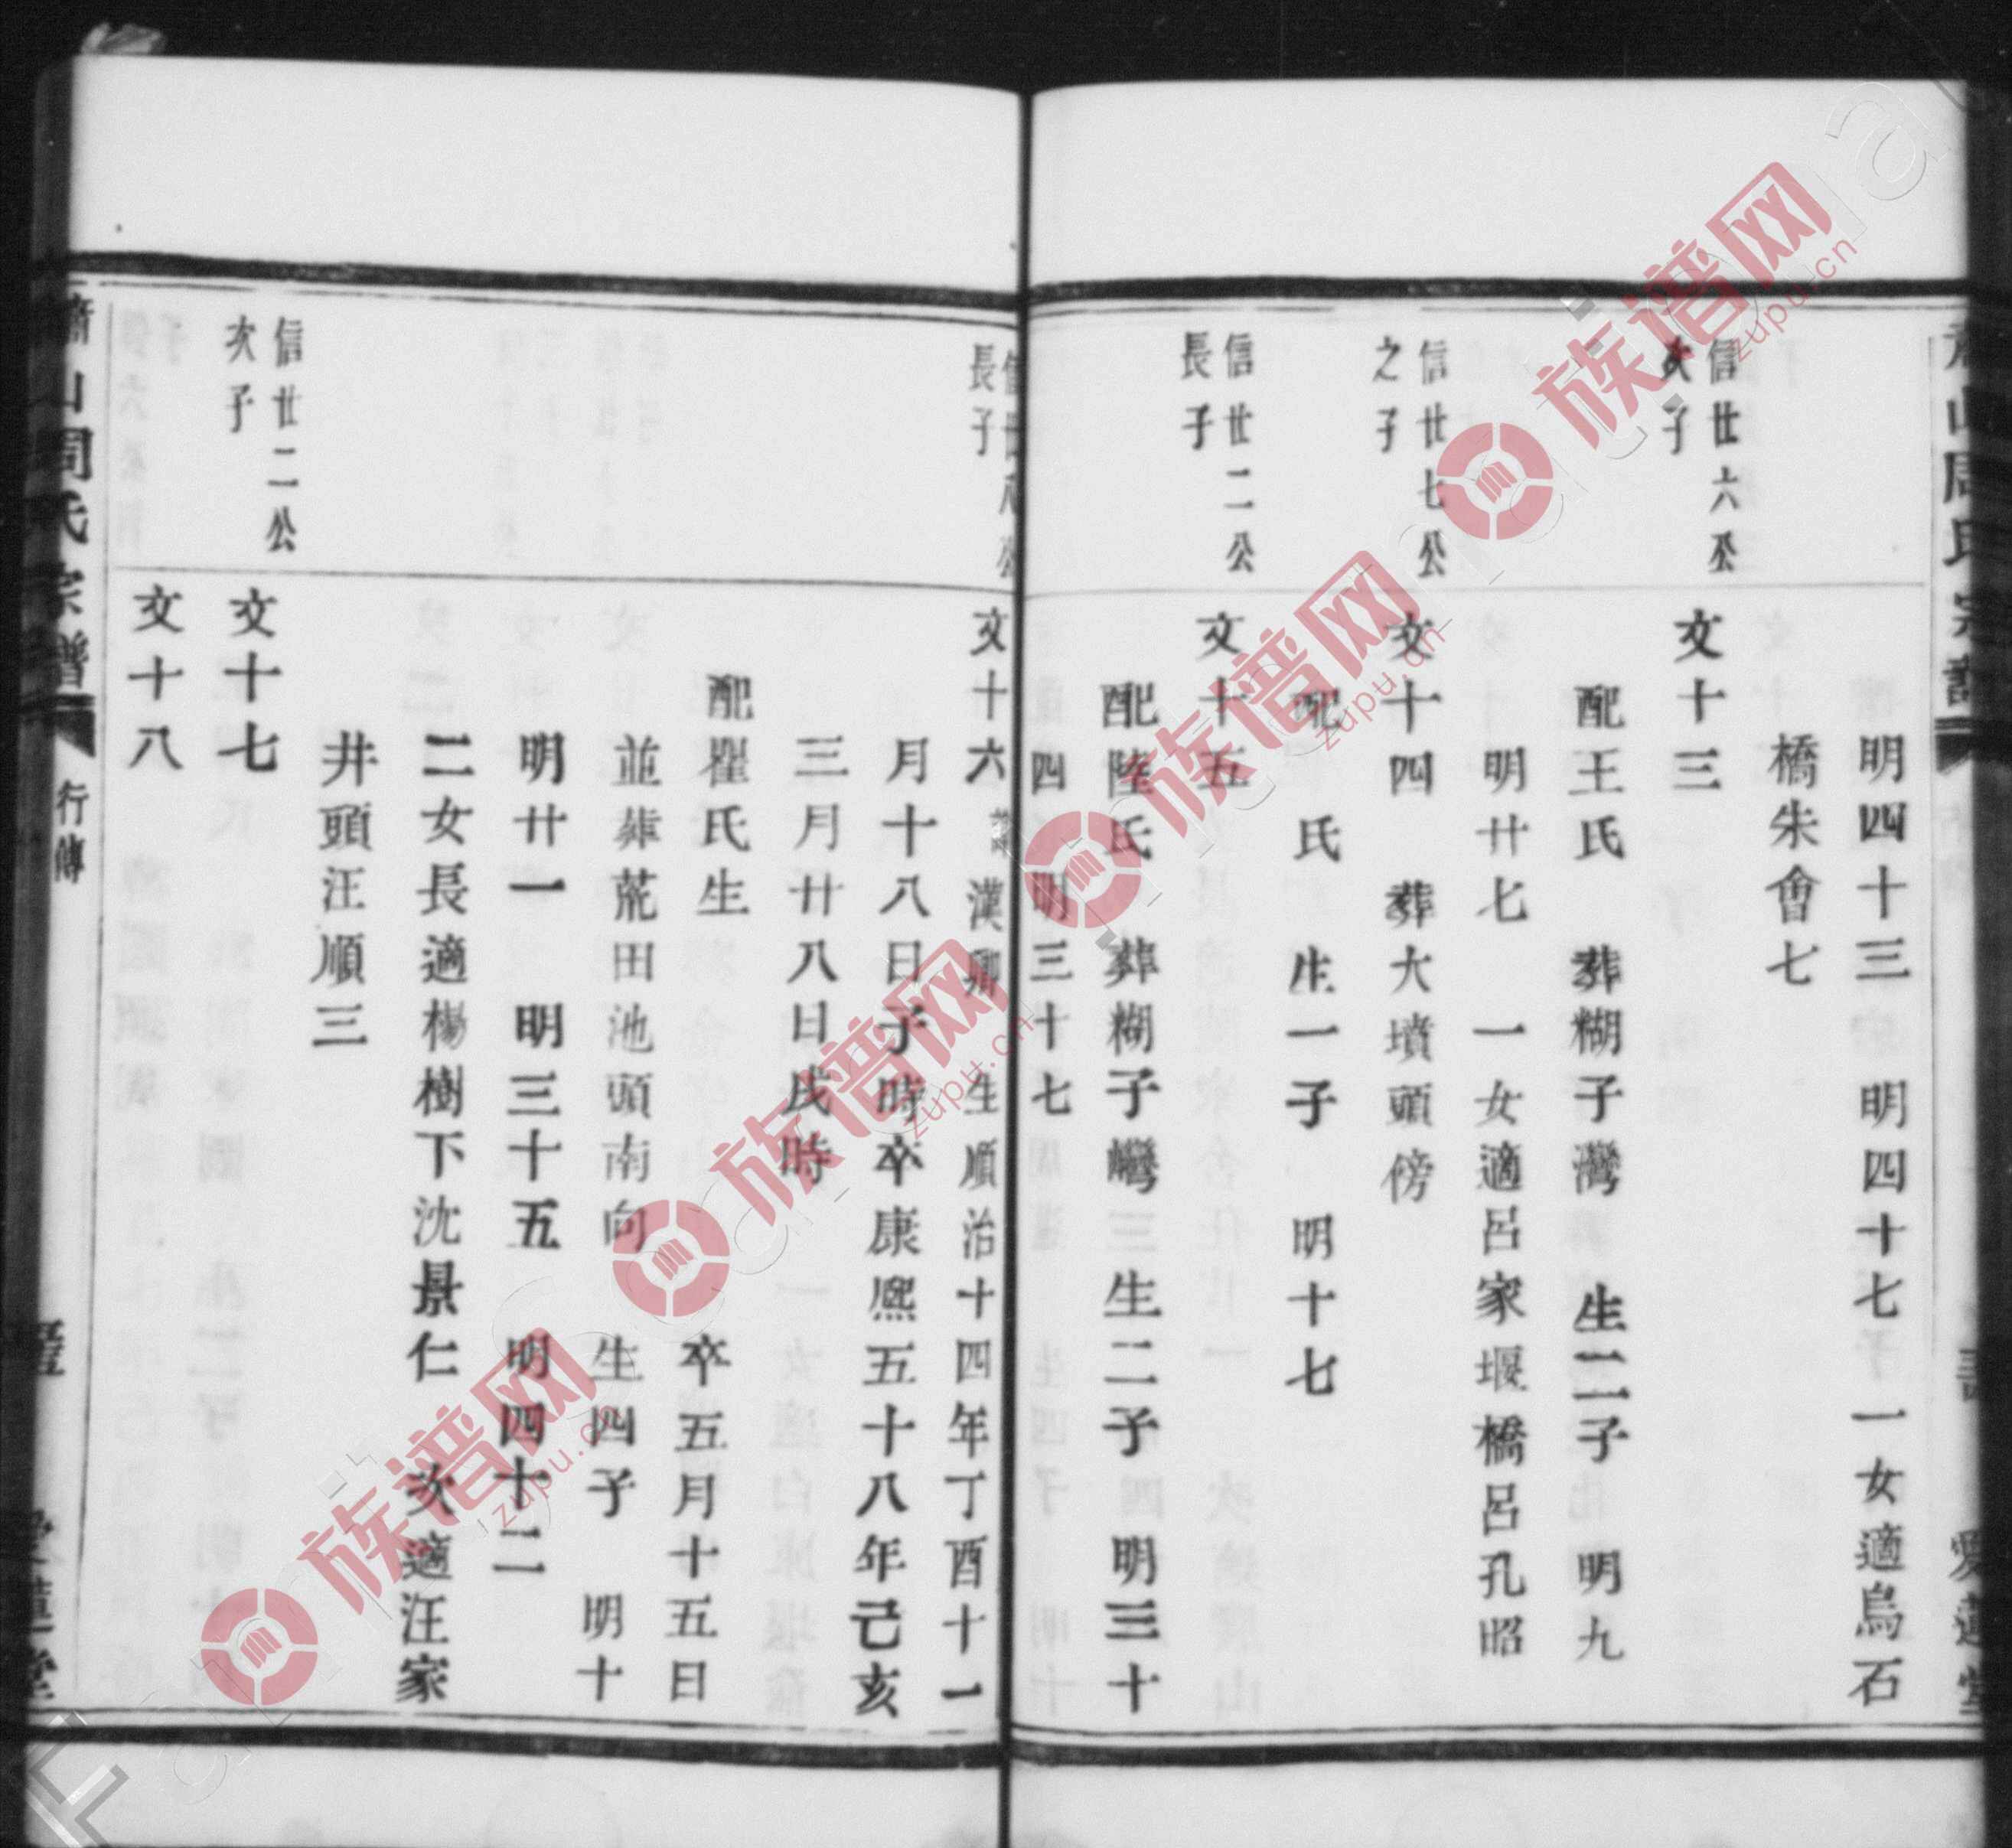 明四十三　明四十七　一女適烏石
橋朱會七
信廿六公
次子
文十三
配王氏　葬糊子灣　生二子　明九
明廿七　一女適呂家堰橋呂孔昭
信廿七公
之子
文十四　葬大墳頭傍
配　氏　生一子　明十七
信廿二公
長子
文十五
配陸氏　葬糊子灣三生二子　明三十
四　明三十七
長子
文十六　漢卿　生順治十四年丁酉十一
月十八日子時卒康熙五十八年己亥
三月廿八日戌時
配瞿氏生　卒五月十五日
並葬荒田池頭南向　生四子　明十
明廿一　明三十五　明四十二
二女長適楊樹下沈景仁　次適汪家
井頭汪順三
信廿二公
次子
文十七
文十八
山周氏宗譜　行傳
族谱网
zupu.cn
族谱网
zupu.cn
族谱网
zupu.cn
族谱网
zupu.cn